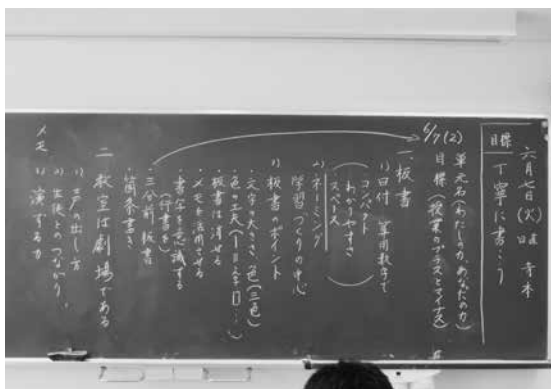 六月七日(火) 日直 寺本
目標 丁寧に書こう
6/7(2) 単元名(わたしの力、あなたの力)
目標(授業のプラスとマイナス)
一 板書
1) 日付 算用数字で
コンパクト
わかりやすさ
スペース
2) ネーミング
学習づくりの中心
3) 板書のポイント
・文字の大きさ、色(三色)
・色の工夫
・板書は消せる
・メモを活用させる
・書写を意識する
(行書も)
・三分前板書
・箇条書き
二 教室は劇場である
1) 声の出し方
2) 生徒とのつながり
3) 演ずる力
メモ